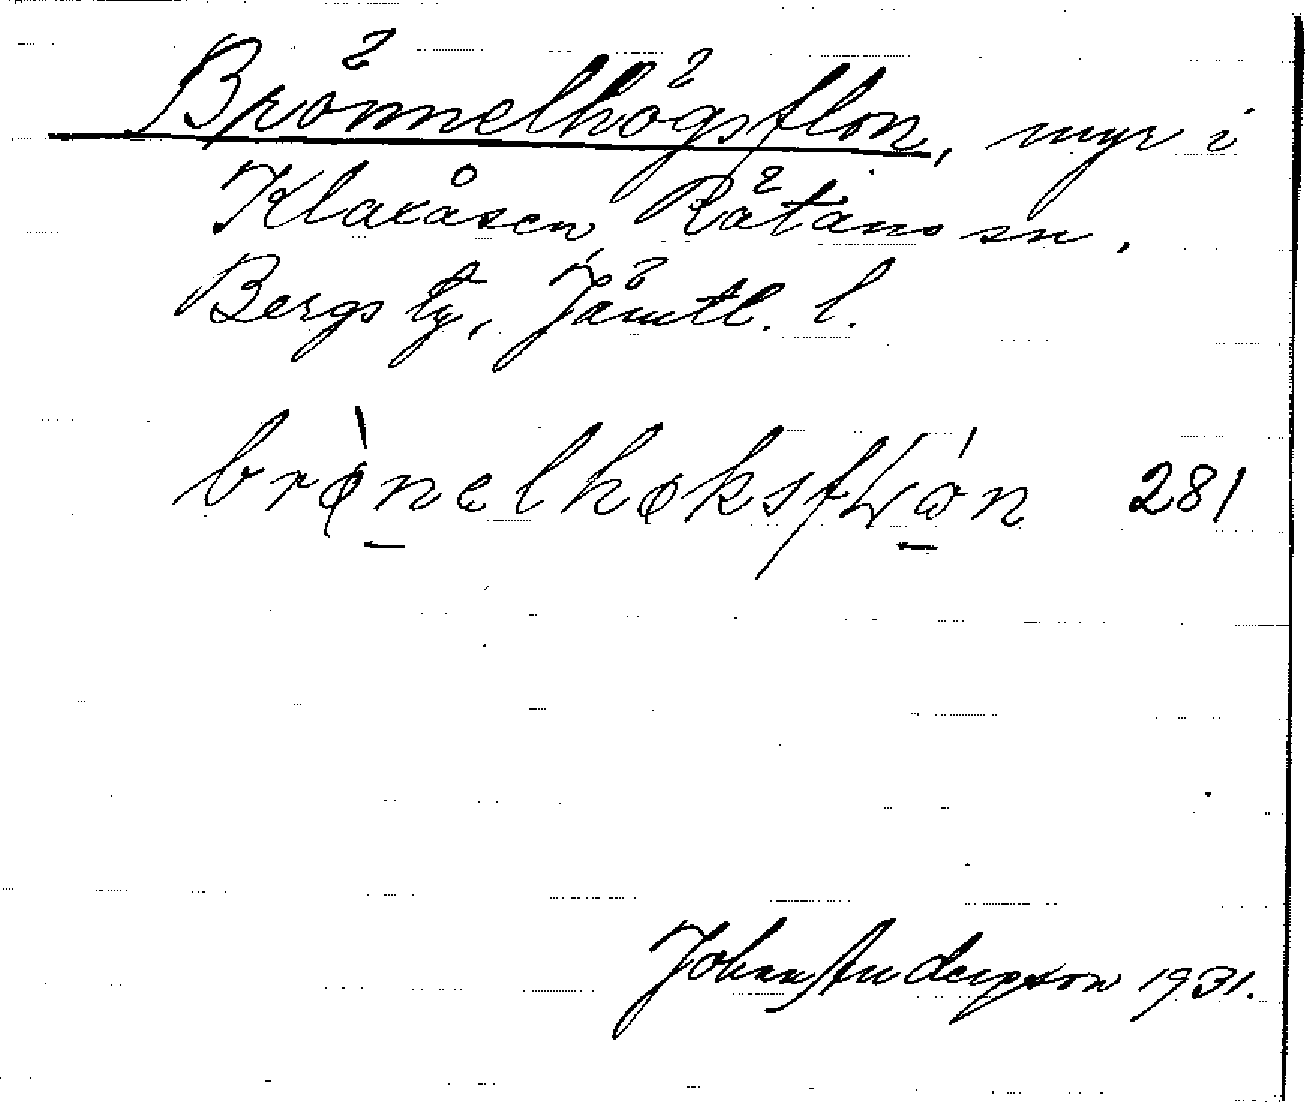 Brönnelhögsflon, myr i
Klaxåsen, Rätans sn.
Bergs tg, Jämtl. l.
brø̀nelhøksflón 281
Johan Anderson 1931.